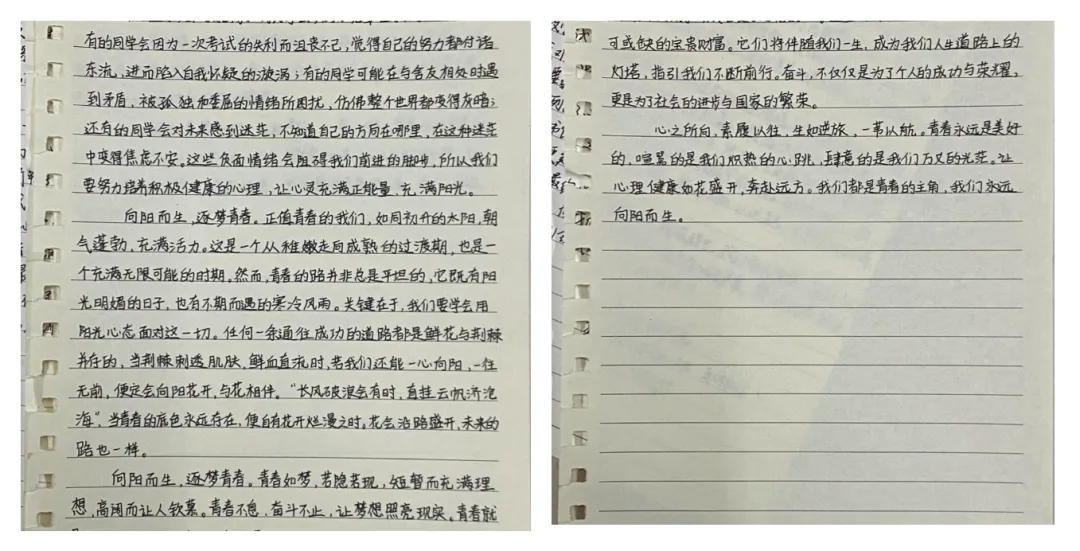 有的同学会因为一次考试的失利而沮丧不已，觉得自己的努力都付诸
东流，进而陷入自我怀疑的漩涡；有的同学可能在与舍友相处时遇
到矛盾，被孤独和委屈的情绪所困扰，仿佛整个世界都变得灰暗；
还有的同学会对未来感到迷茫，不知道自己的方向在哪里，在这种迷茫
中变得焦虑不安。这些负面情绪会阻碍我们前进的脚步，所以我们
要努力培养积极健康的心理，让心灵充满正能量，充满阳光。
向阳而生，逐梦青春。正值青春的我们，如同初升的太阳，朝
气蓬勃，充满活力。这是一个从稚嫩走向成熟的过渡期，也是一
个充满无限可能的时期。然而，青春的路并非总是平坦的，它既有阳
光明媚的日子，也有不期而遇的寒冷风雨。关键在于，我们要学会用
阳光心态面对这一切。任何一条通往成功的道路都是鲜花与荆棘
并存的，当荆棘刺透肌肤，鲜血直流时，若我们还能一心向阳，一往
无前，便定会向阳花开，与花相伴。“长风破浪会有时，直挂云帆济沧
海”当青春的底色永远存在，便自有花开烂漫之时。花会沿路盛开，未来的
路也一样。
向阳而生，逐梦青春。青春如梦，若隐若现，短暂而充满理
想，高阔而让人钦慕。青春不息，奋斗不止，让梦想照亮现实。青春就
可或缺的宝贵财富。它们将伴随我们一生，成为我们人生道路上的
灯塔，指引我们不断前行。奋斗，不仅仅是为了个人的成功与荣耀，
更是为了社会的进步与国家的繁荣。
心之所向，素履以往，生如逆旅，一苇以航。青春永远是美好
的，喧嚣的是我们炽热的心跳，肆意的是我们万丈的光芒。让
心理健康如花盛开，奔赴远方。我们都是青春的主角，我们永远
向阳而生。